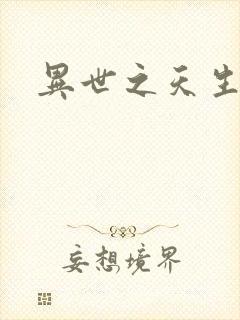 異世之天生
妄想境界